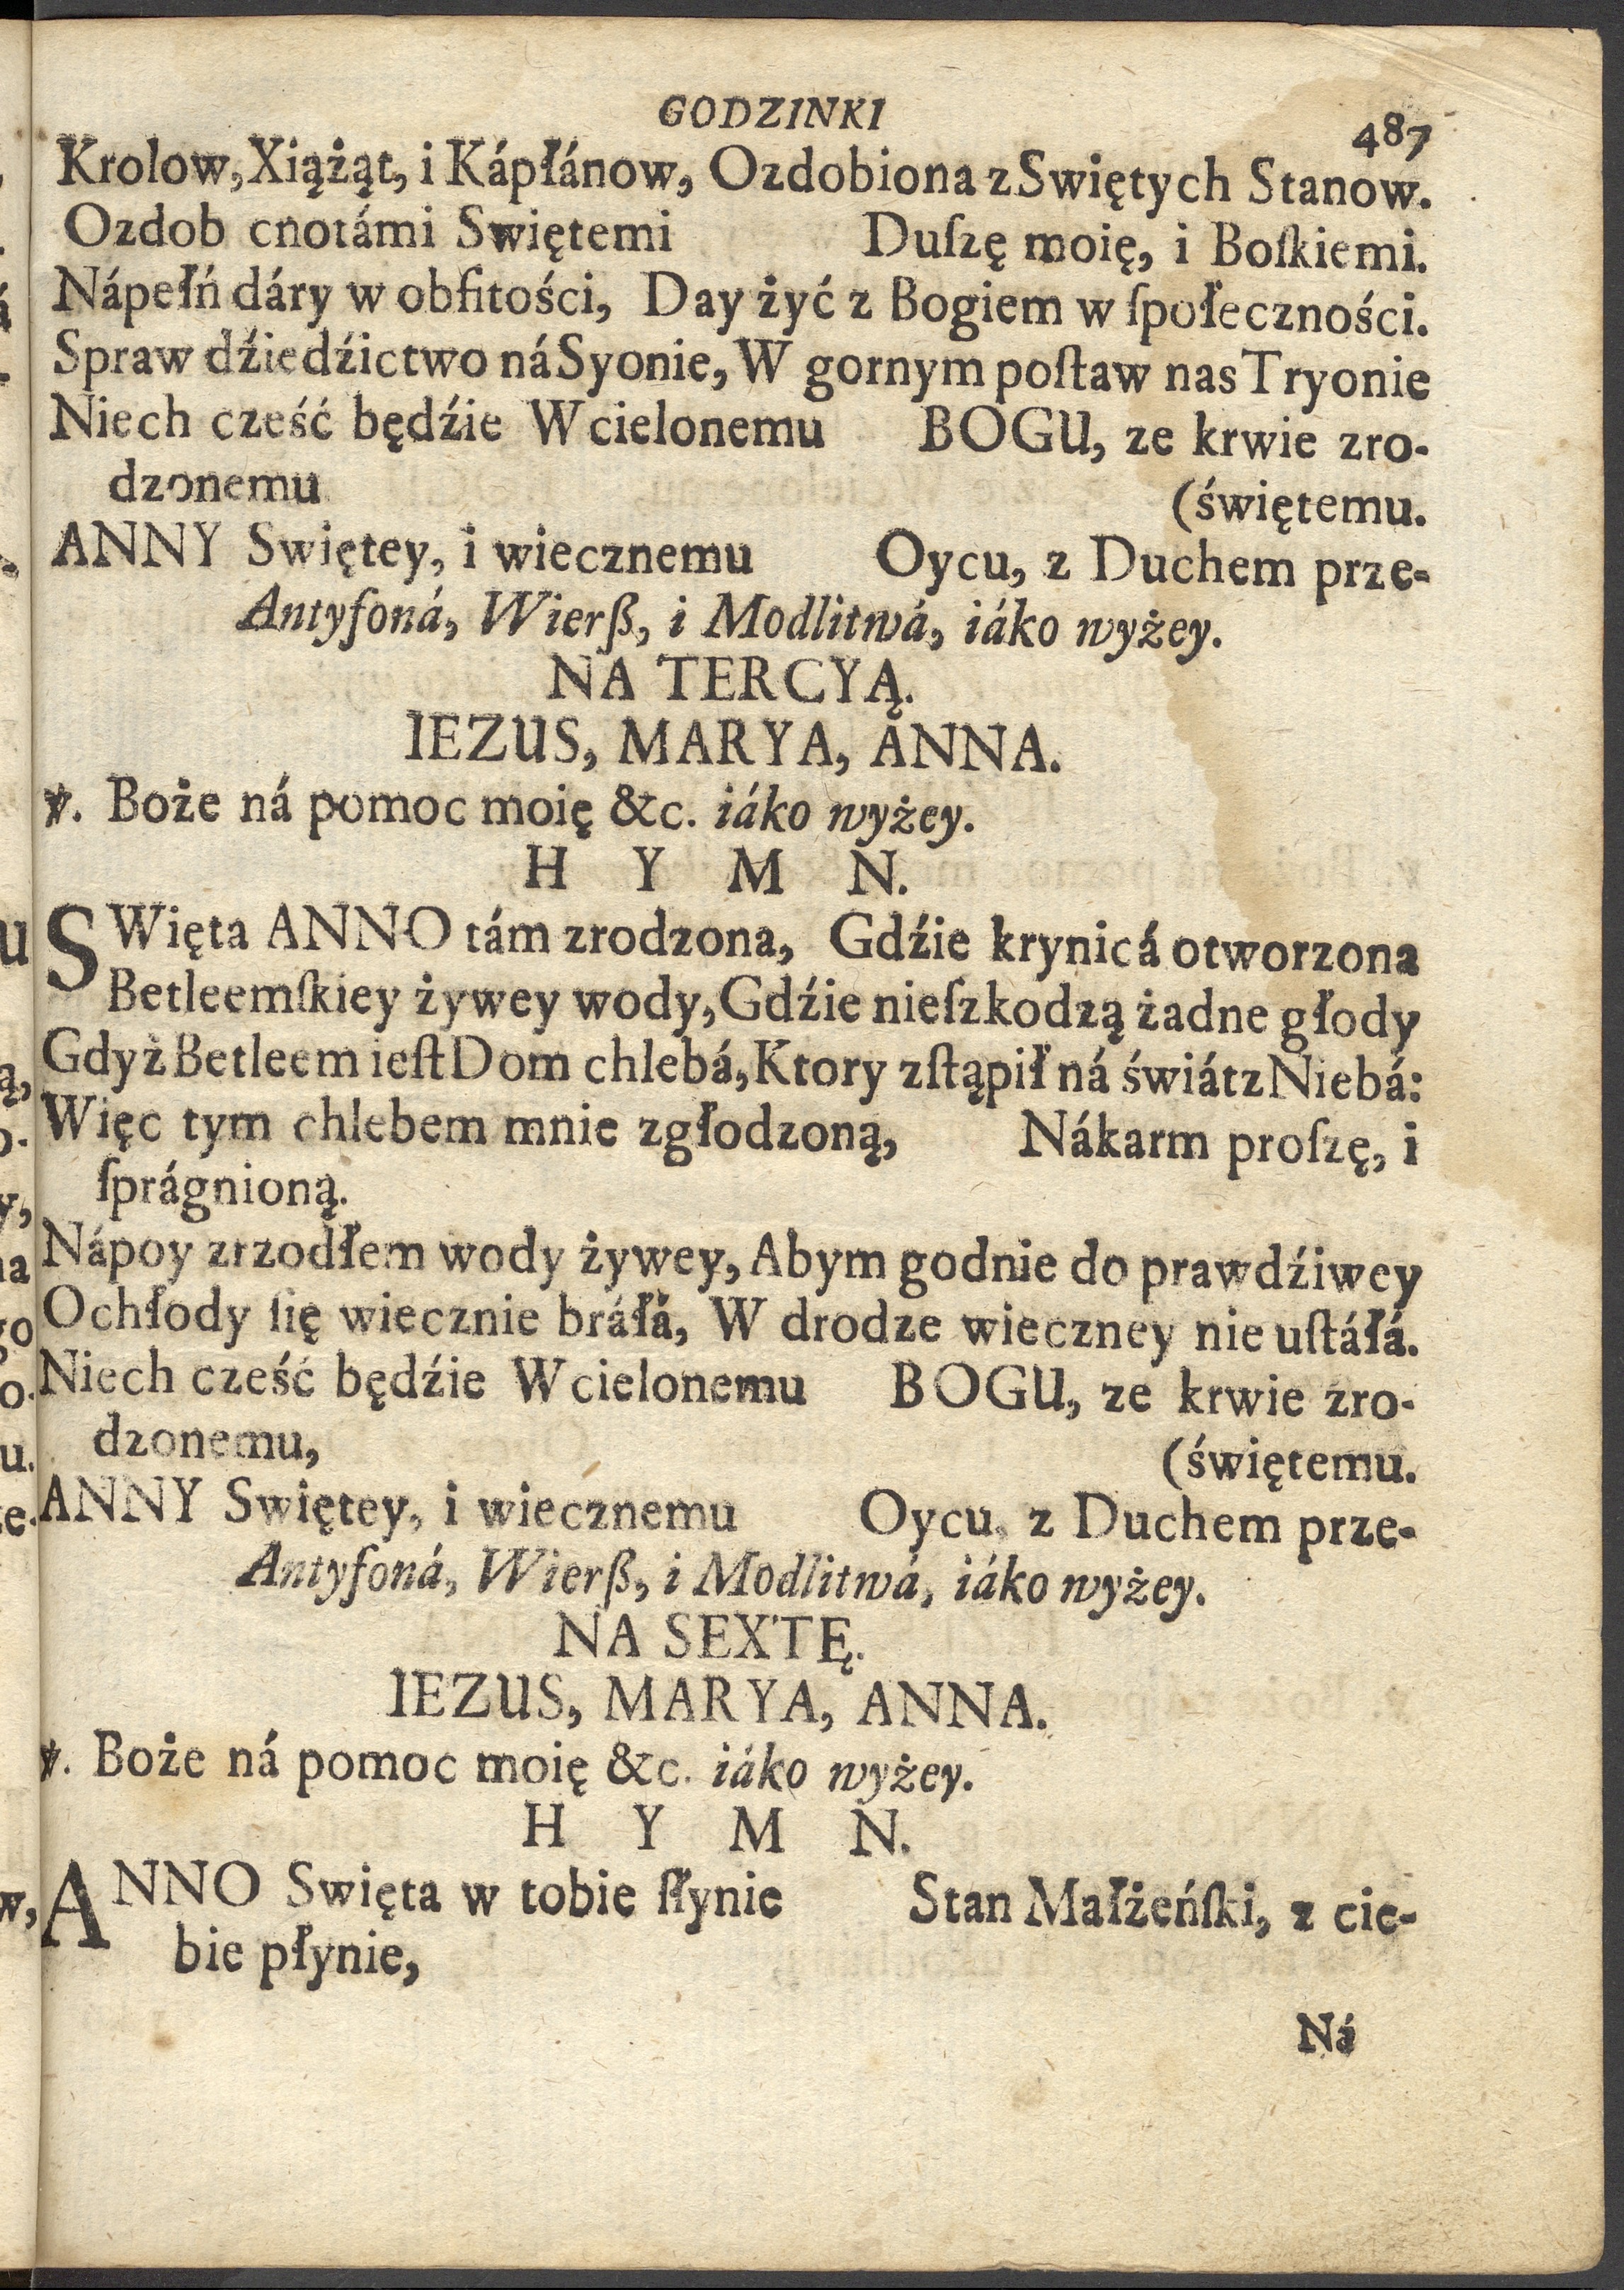 GODZINKI 487
Krolow, Xiążąt, i Kápłánow, Ozdobiona z Swiętych Stanow.
Ozdob cnotámi Swiętemi Duſzę moię, i Boſkiemi.
Nápełń dáry w obfitości, Day żyć z Bogiem w ſpołeczności.
Spraw dźiedźictwo ná Syonie, W gornym poſtaw nas Tryonie
Niech cześć będźie Wcielonemu BOGU, ze krwie zro-
dzonemu (świętemu.
ANNY Swiętey, i wiecznemu Oycu, z Duchem prze-
Antyfoná, Wierß, i Modlitwá, iáko wyżey.
NA TERCYĄ.
IEZUS, MARYA, ANNA.
℣. Boże ná pomoc moię &c. iáko wyżey.
H Y M N.
SWięta ANNO tám zrodzona, Gdźie krynicá otworzona
Betleemſkiey żywey wody, Gdźie nieſzkodzą żadne głody
Gdyż Betleem ieſt Dom chlebá, Ktory zſtąpił ná świát z Niebá:
Więc tym chlebem mnie zgłodzoną, Nákarm proſzę, i
ſprágnioną.
Nápoy zrzodłem wody żywey, Abym godnie do prawdźiwey
Ochłody ſię wiecznie bráłá, W drodze wieczney nie uſtáłá.
Niech cześć będźie Wcielonemu BOGU, ze krwie zro-
dzonemu, (świętemu.
ANNY Swiętey, i wiecznemu Oycu, z Duchem prze-
Antyfoná, Wierß, i Modlitwá, iáko wyżey.
NA SEXTĘ.
IEZUS, MARYA, ANNA.
℣. Boże ná pomoc moię &c. iáko wyżey.
H Y M N.
ANNO Swięta w tobie ſłynie Stan Małżeńſki, z cie-
bie płynie,
Ná